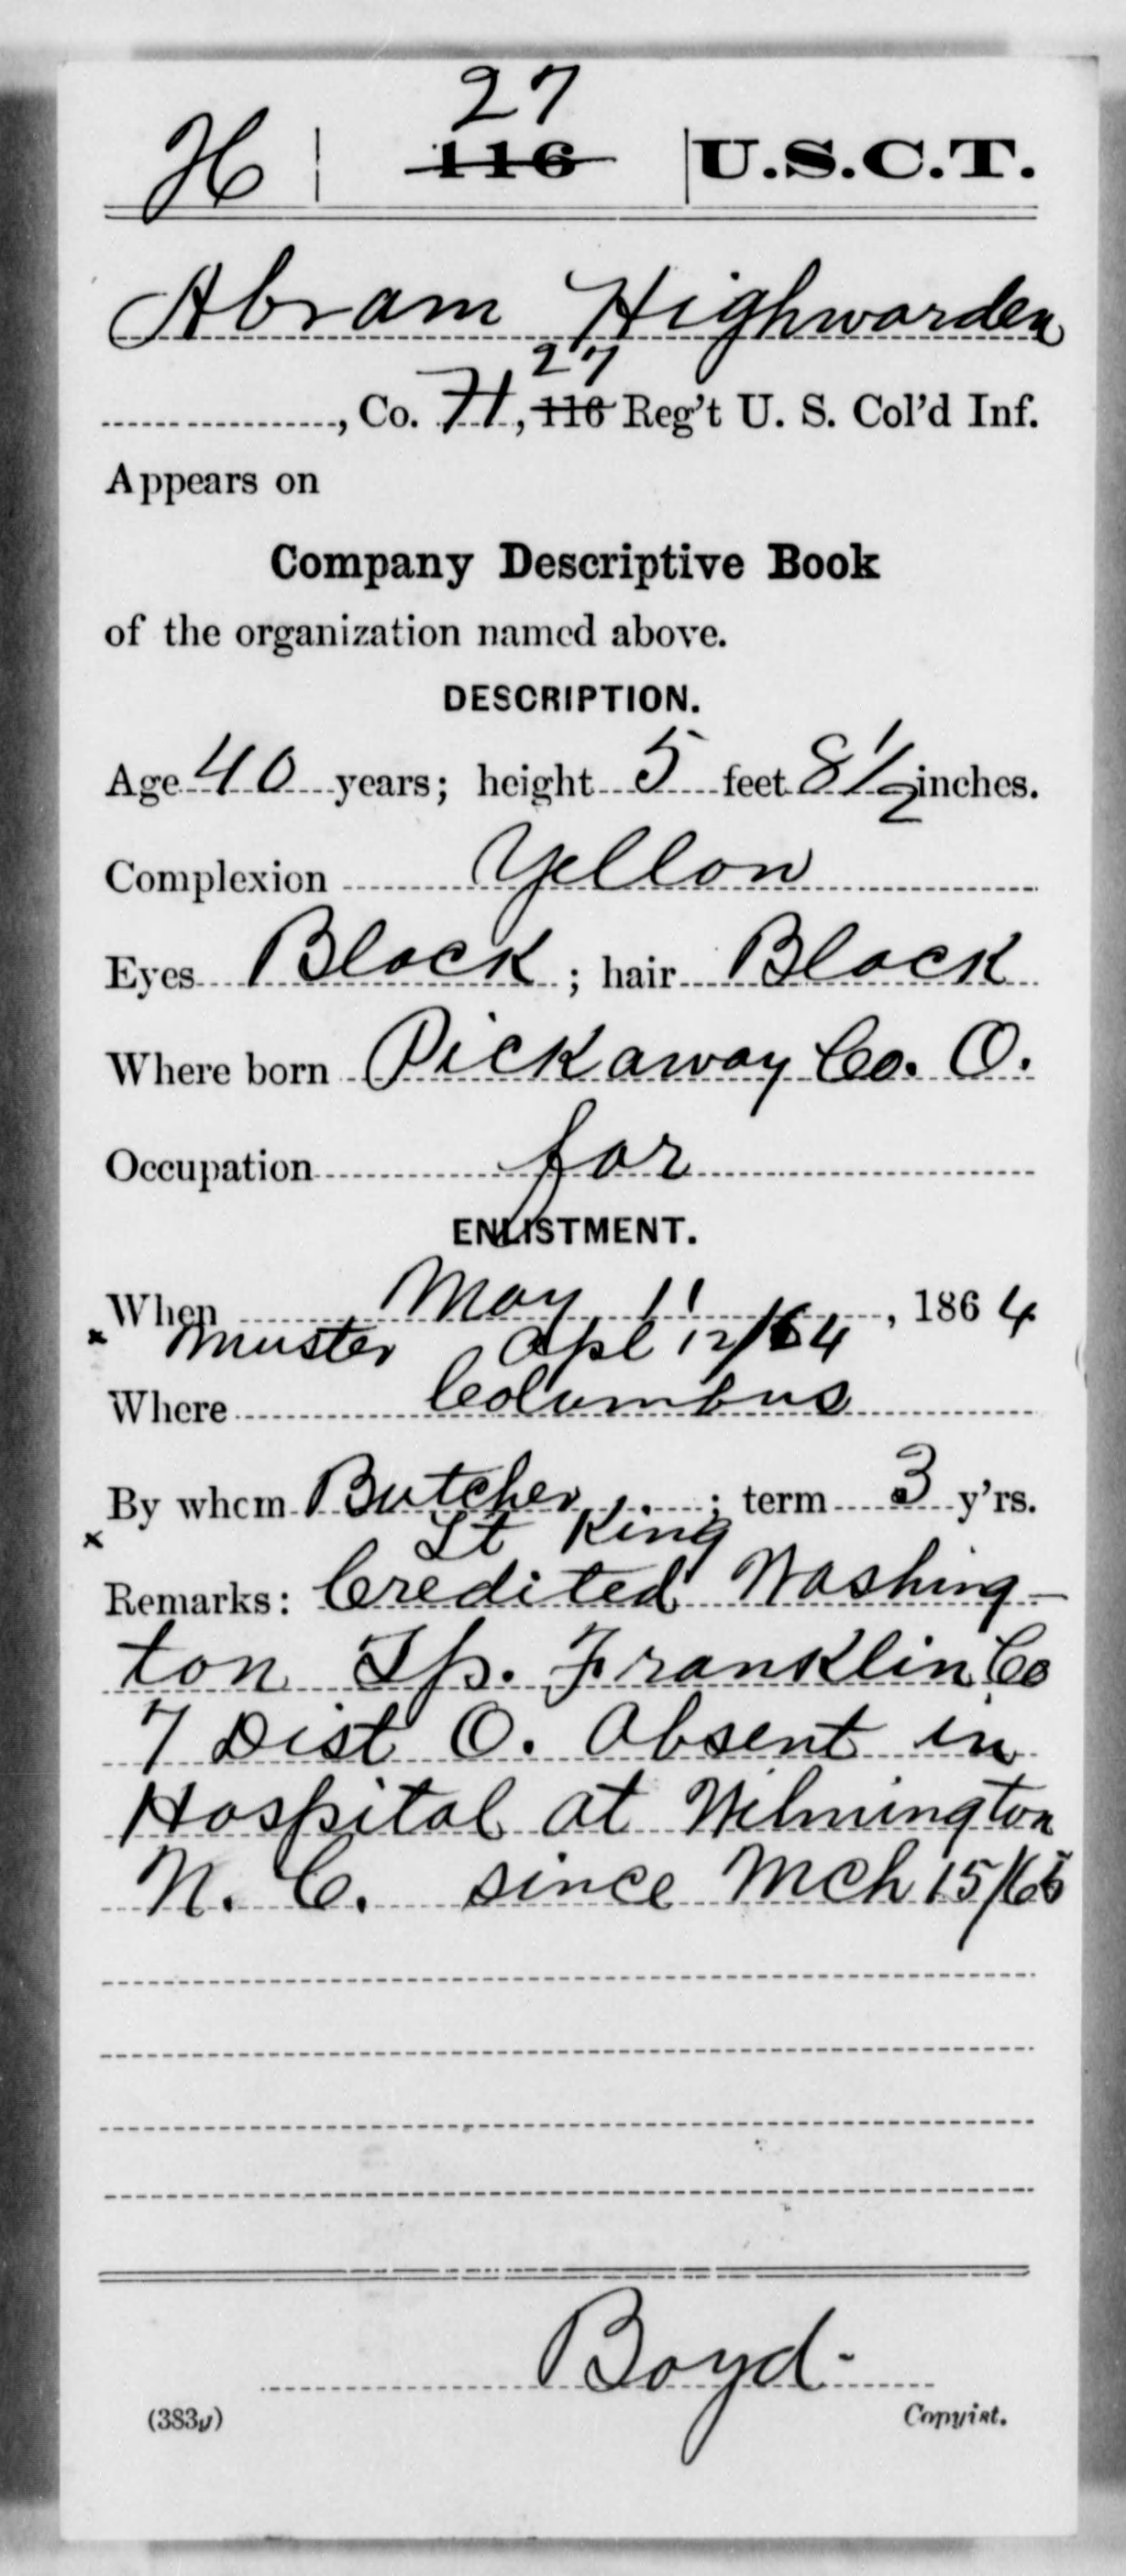 27
H | 116 | U.S.C.T.
Abram Highwarden
27
, Co. H, 116 Reg't U. S. Col'd Inf.
Appears on
Company Descriptive Book
of the organization named above.
DESCRIPTION.
Age 40 years; height 5 feet 8 1/2 inches.
Complexion Yellow
Eyes Black; hair Black
Where born Pickaway Co. O.
Occupation far
ENLISTMENT.
When May 11, 1864
x Muster Apl 12/64
Where Columbus
By whom Butcher; term 3 y'rs.
x Lt King
Remarks: Credited Washing-
ton Tp. Franklin Co
7 Dist O. Absent in
Hospital at Wilmington
N. C. since Mch 15/65
Boyd
(383g) Copyist.